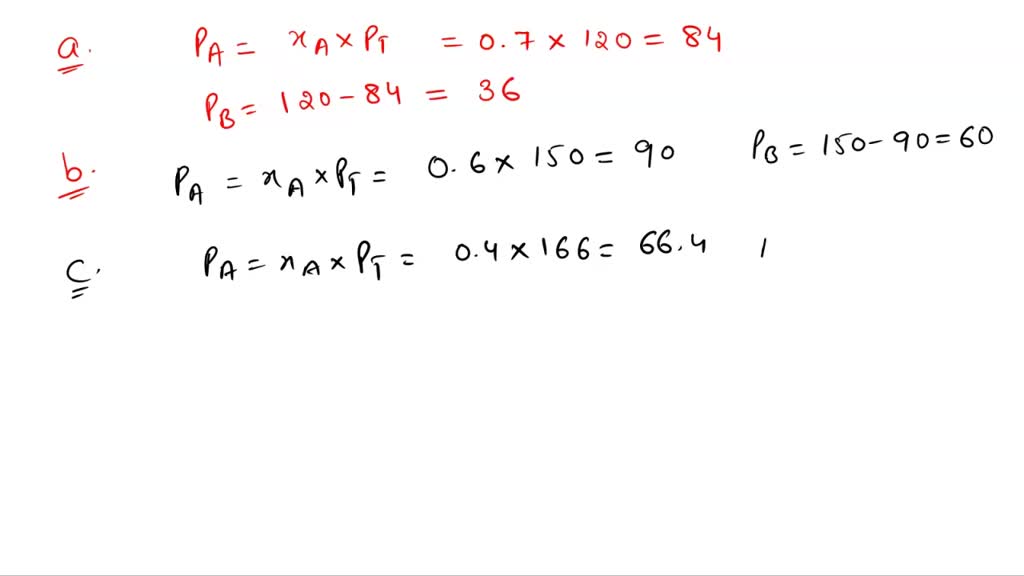 a. P_A = x_A × P_T = 0.7 × 120 = 84
P_B = 120 - 84 = 36
b. P_A = x_A × P_T = 0.6 × 150 = 90 P_B = 150 - 90 = 60
c. P_A = x_A × P_T = 0.4 × 166 = 66.4